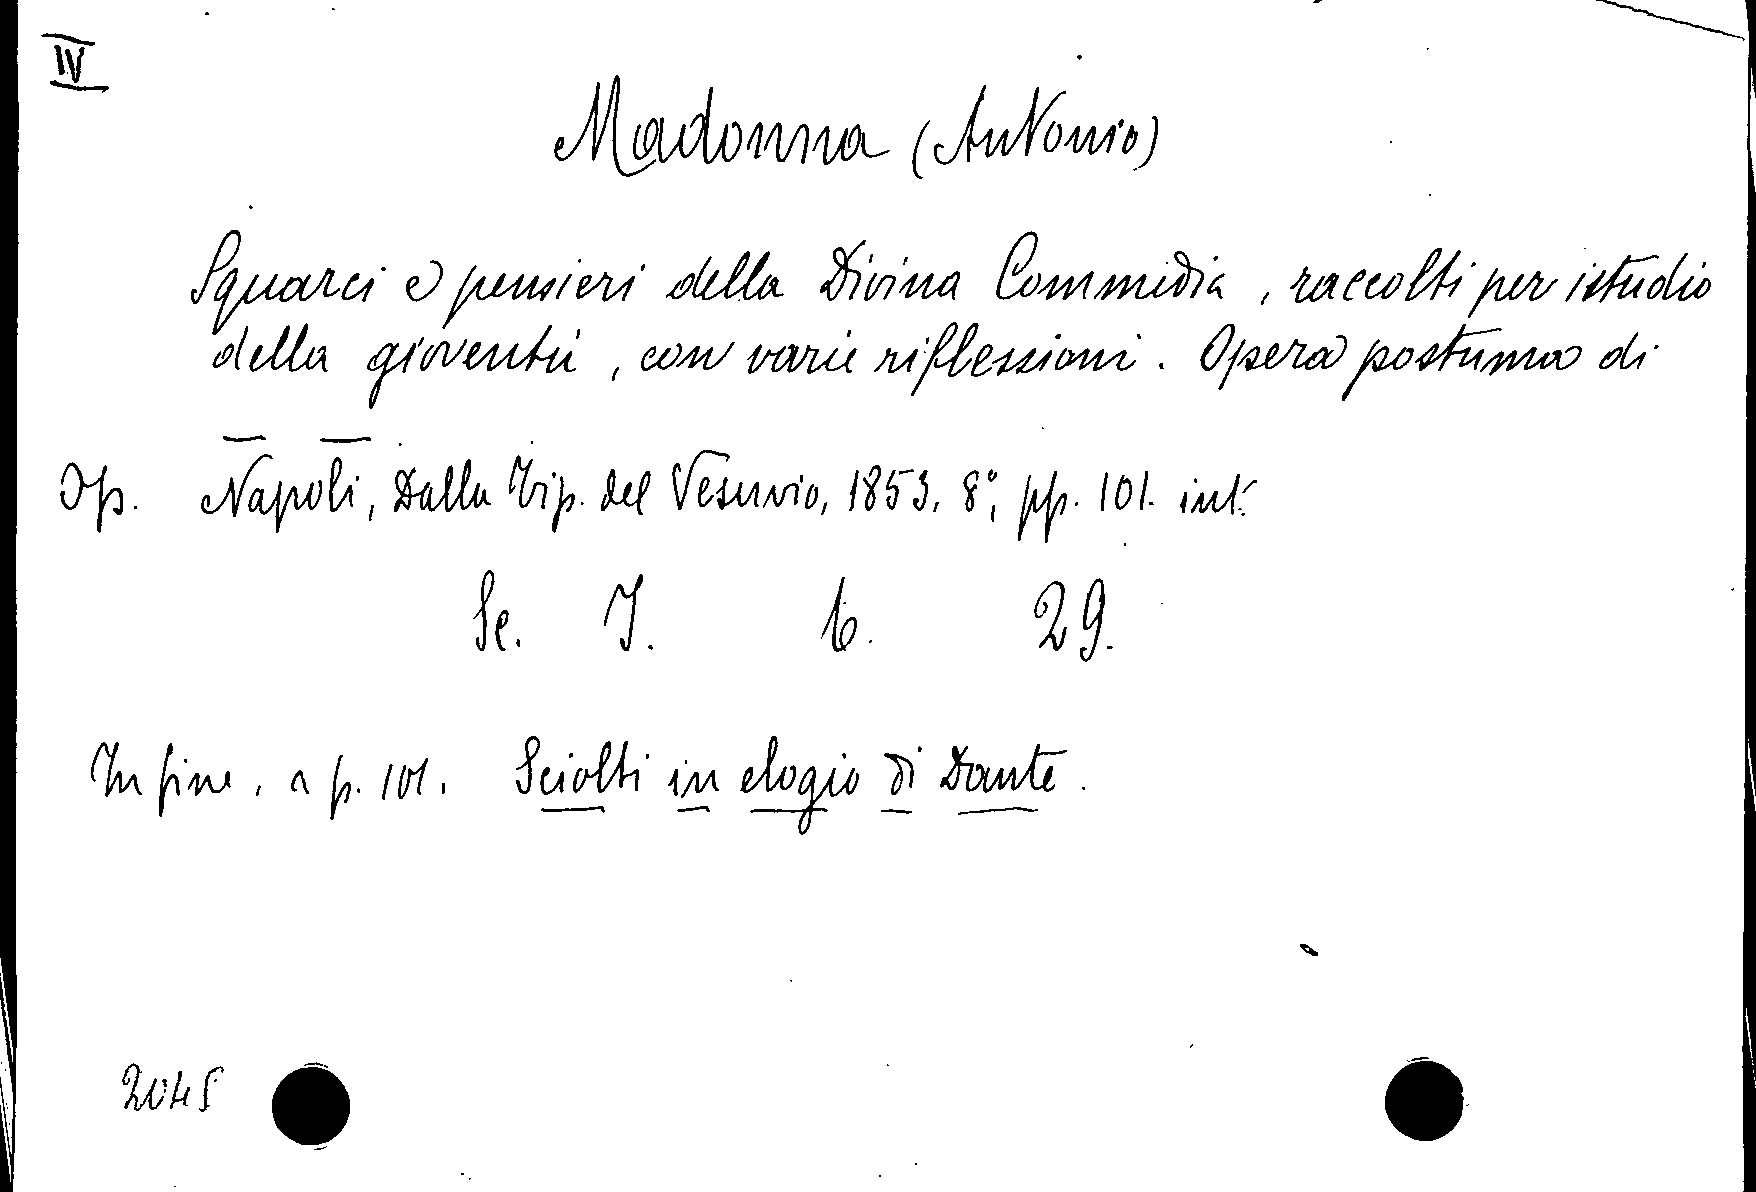 IV
Madonna (Antonio)
Squarci e pensieri della Divina Commedia, raccolti per istudio
della gioventù, con varie riflessioni. Opera postuma di
— —
Op. Napoli, Dalla Tip. del Vesuvio, 1853, 8°, pp. 101. int.
Se. I. 6. 29.
In fine, a p. 101. Sciolti in elogio di Dante.
2045